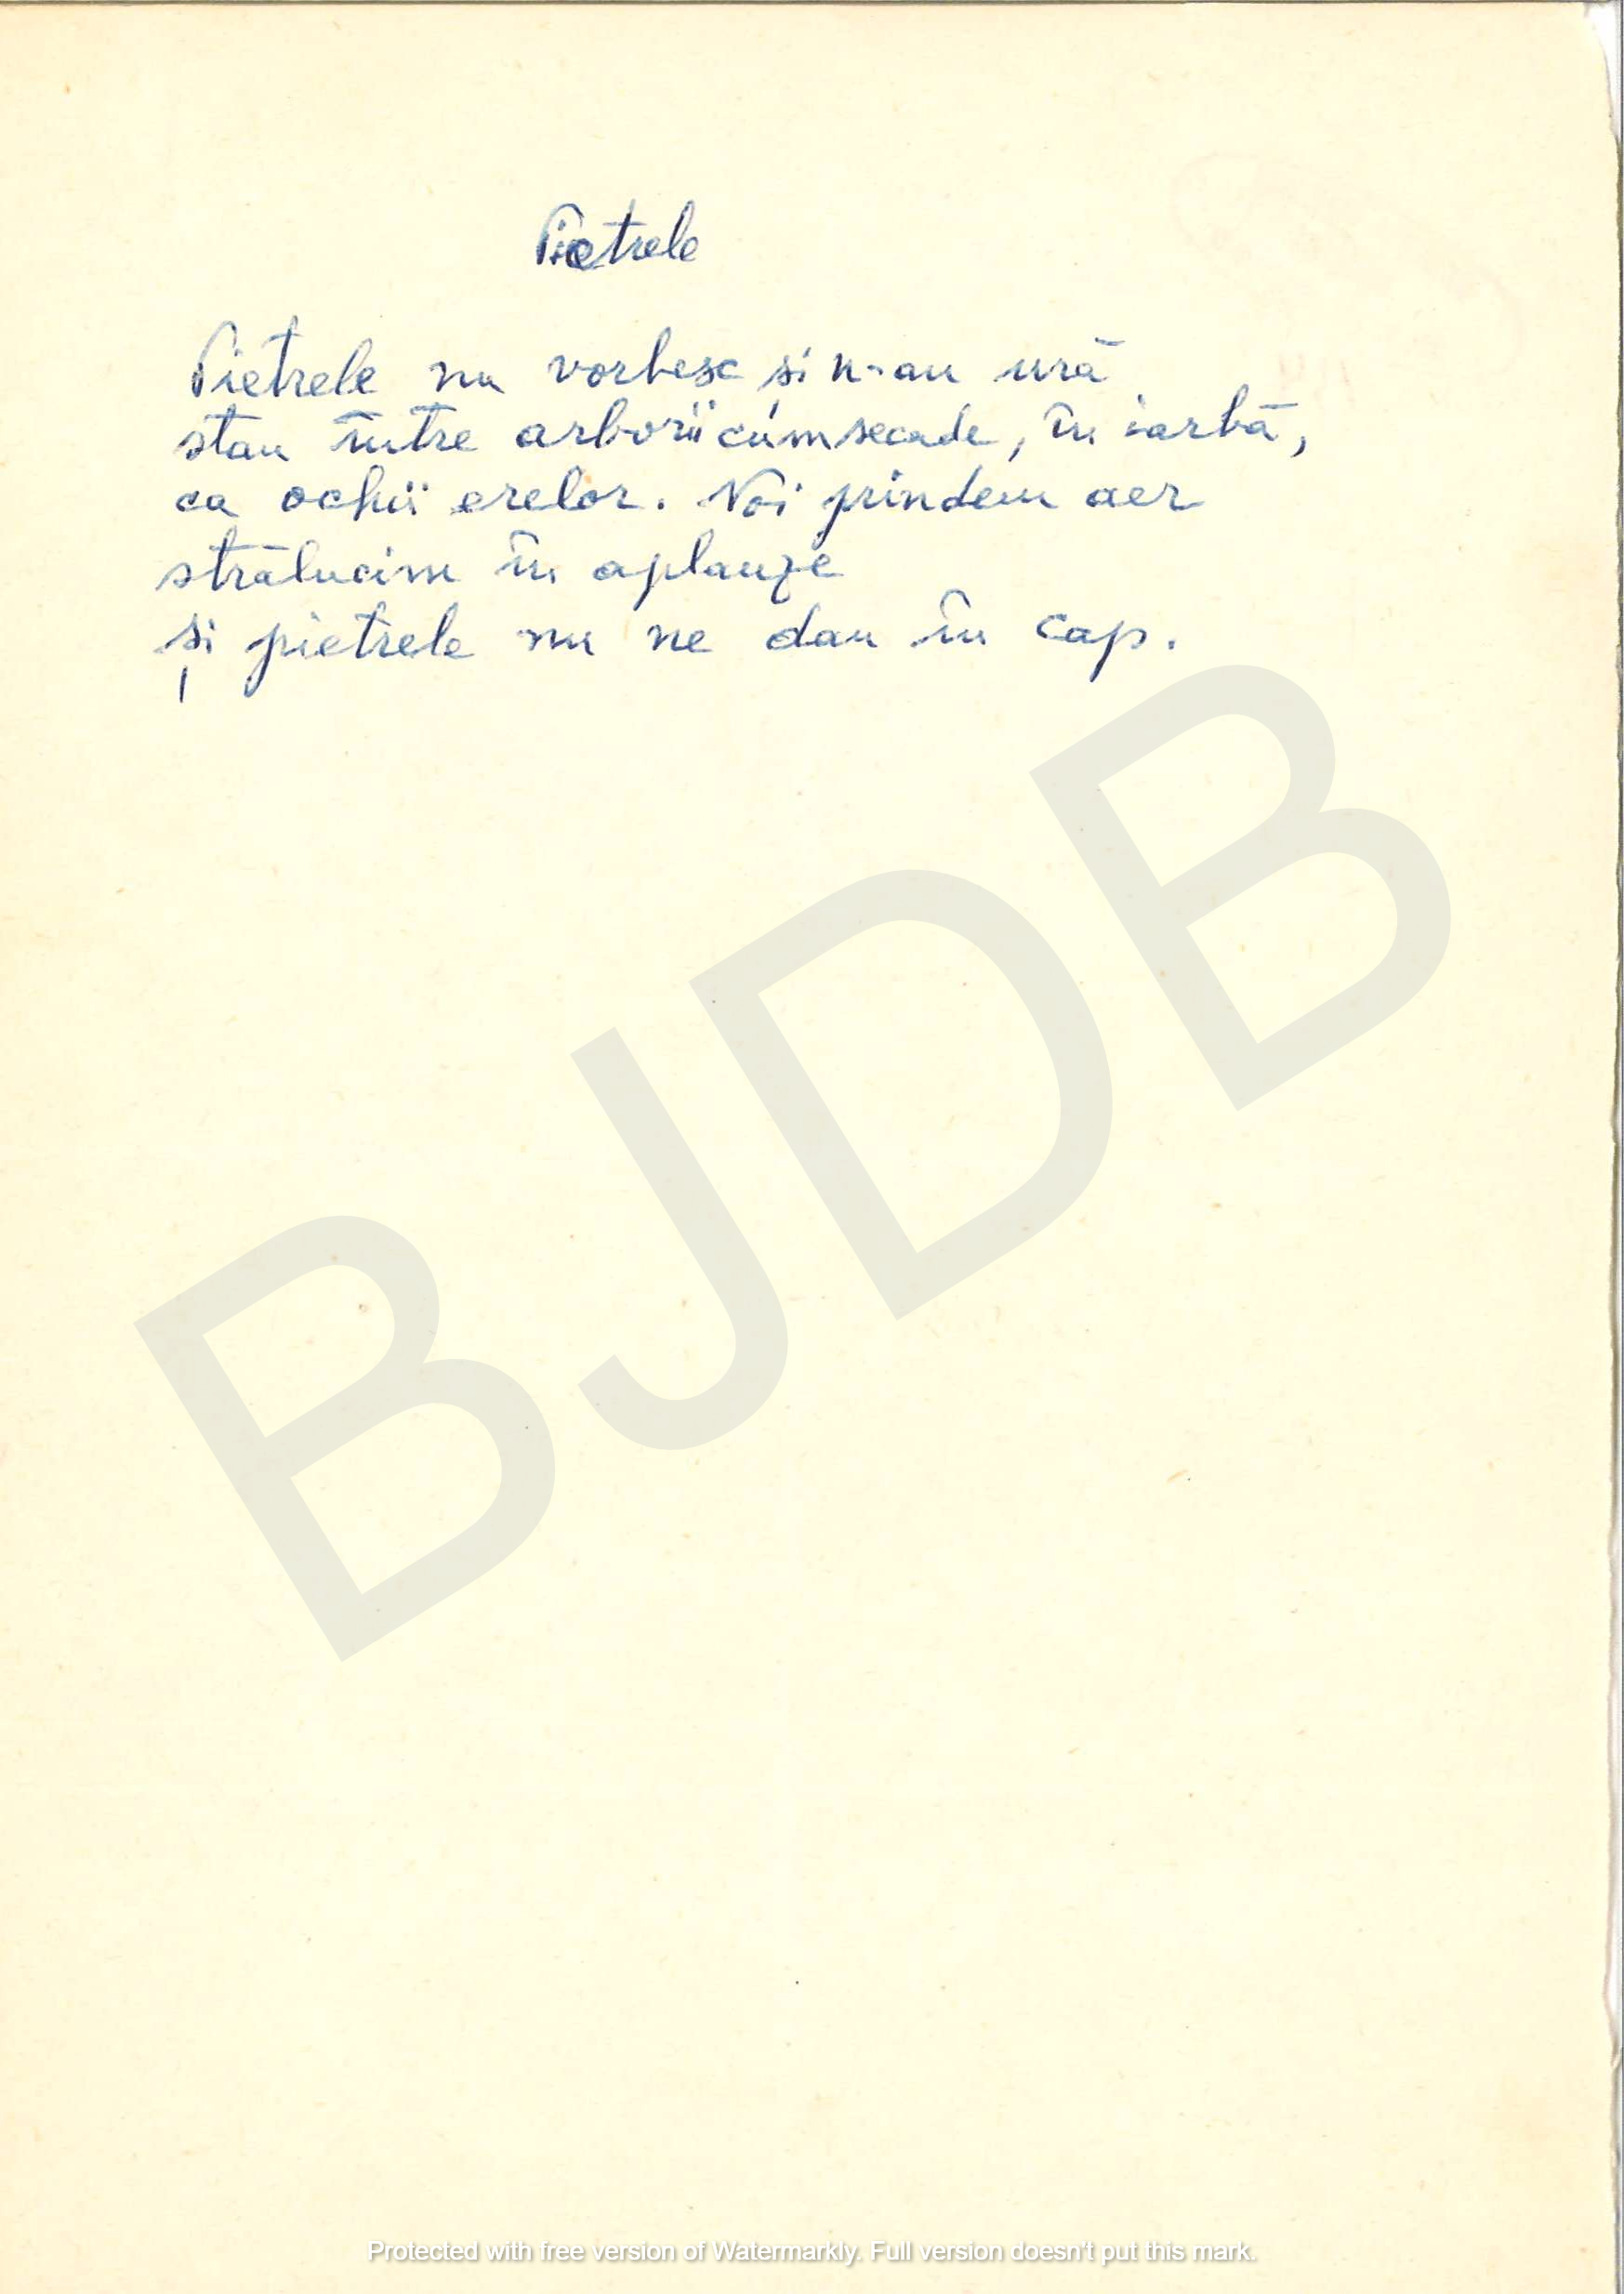 Pietrele
Pietrele nu vorbesc și n-au ură
stau între arborii cum se cade, în iarbă,
ca ochii erelor. Noi prindem aer
strălucim în aplauze
și pietrele nu ne dau în cap.
BJDB
Protected with free version of Watermarkly. Full version doesn't put this mark.